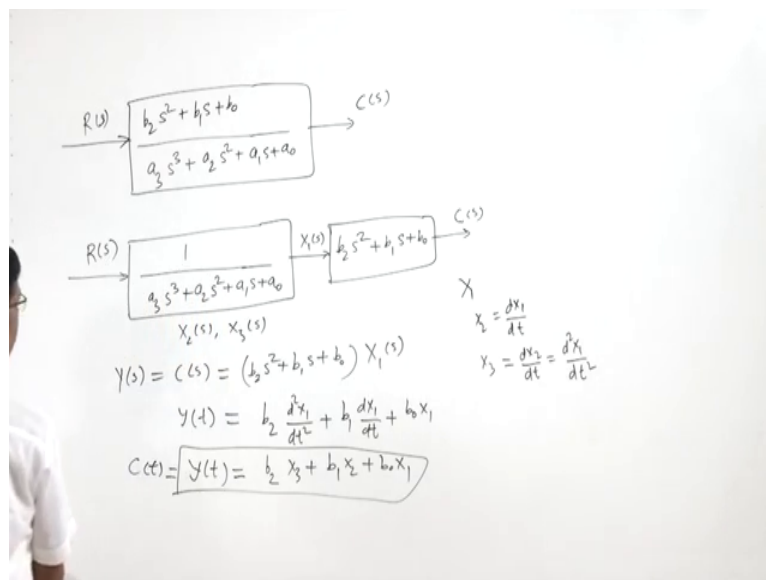 R(s) b₂s²+b₁s+b₀ C(s)
a₃s³+a₂s²+a₁s+a₀
R(s) 1 X₁(s) b₂s²+b₁s+b₀ C(s)
a₃s³+a₂s²+a₁s+a₀
X₂(s), X₃(s)
X₁
x₂ = dx₁/dt
x₃ = dx₂/dt = d²x₁/dt²
Y(s) = C(s) = (b₂s²+b₁s+b₀) X₁(s)
y(t) = b₂ d²x₁/dt² + b₁ dx₁/dt + b₀x₁
C(t) = y(t) = b₂ x₃ + b₁x₂ + b₀x₁